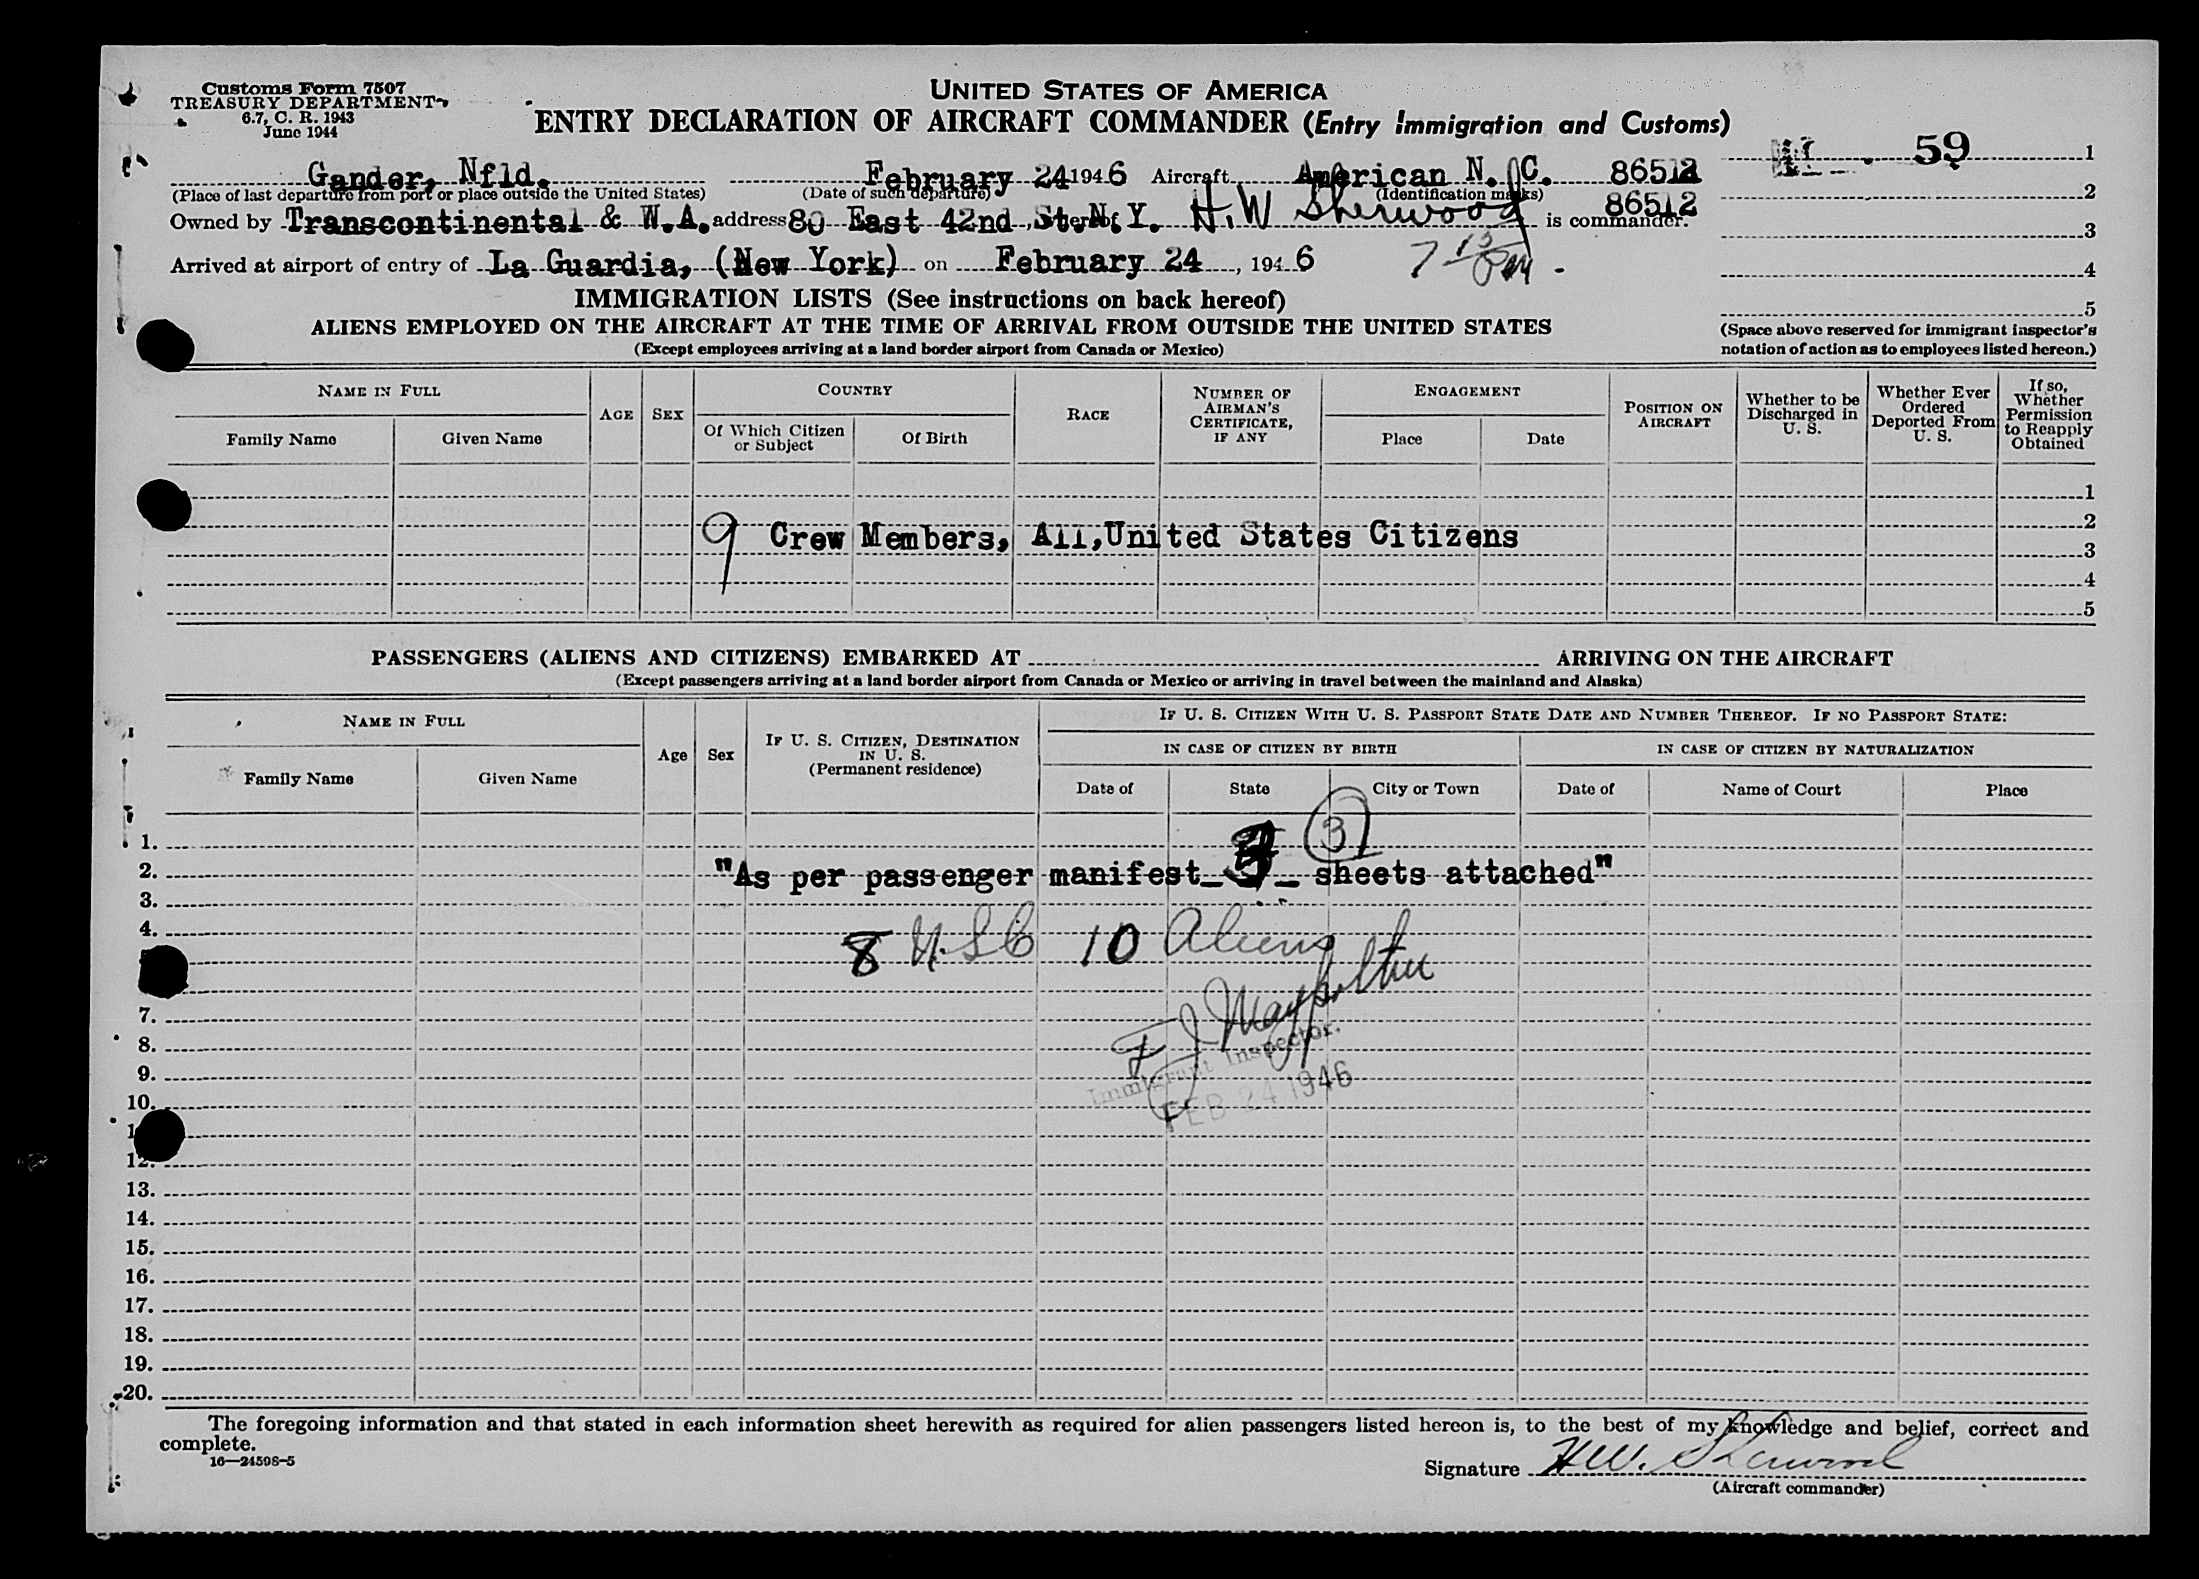 Customs Form 7507
TREASURY DEPARTMENT
6.7, C. R. 1943
June 1944
UNITED STATES OF AMERICA
ENTRY DECLARATION OF AIRCRAFT COMMANDER (Entry Immigration and Customs)
59 1
Gander, Nfld. February 24 1946 Aircraft American N. C. 86512
(Place of last departure from port or place outside the United States) (Date of such departure) (Identification marks) 2
86512
Owned by Transcontinental & W.A. address 80 East 42nd St. N.Y. H.W Sherwood is commander.
3
Arrived at airport of entry of La Guardia, (New York) on February 24, 1946 7 15 PM
4
IMMIGRATION LISTS (See instructions on back hereof)
5
ALIENS EMPLOYED ON THE AIRCRAFT AT THE TIME OF ARRIVAL FROM OUTSIDE THE UNITED STATES
(Except employees arriving at a land border airport from Canada or Mexico)
(Space above reserved for immigrant inspector's
notation of action as to employees listed hereon.)
NAME IN FULL
Family Name
Given Name
AGE
SEX
COUNTRY
Of Which Citizen
or Subject
Of Birth
RACE
NUMBER OF
AIRMAN'S
CERTIFICATE,
IF ANY
ENGAGEMENT
Place
Date
POSITION ON
AIRCRAFT
Whether to be
Discharged in
U. S.
Whether Ever
Ordered
Deported From
U. S.
If so,
Whether
Permission
to Reapply
Obtained
1
2
9 Crew Members, All, United States Citizens
3
4
5
PASSENGERS (ALIENS AND CITIZENS) EMBARKED AT ARRIVING ON THE AIRCRAFT
(Except passengers arriving at a land border airport from Canada or Mexico or arriving in travel between the mainland and Alaska)
NAME IN FULL
Family Name
Given Name
Age
Sex
IF U. S. CITIZEN, DESTINATION
IN U. S.
(Permanent residence)
IF U. S. CITIZEN WITH U. S. PASSPORT STATE DATE AND NUMBER THEREOF. IF NO PASSPORT STATE:
IN CASE OF CITIZEN BY BIRTH
Date of
State
City or Town
IN CASE OF CITIZEN BY NATURALIZATION
Date of
Name of Court
Place
3
1.
2. "As per passenger manifest_ _ sheets attached"
3.
4.
8 U.S.C 10 Aliens
7.
8.
Immigrant Inspector.
9.
FEB 24 1946
10.
12.
13.
14.
15.
16.
17.
18.
19.
20.
The foregoing information and that stated in each information sheet herewith as required for alien passengers listed hereon is, to the best of my knowledge and belief, correct and
complete.
16—24598-5
Signature H.W. Sherwood
(Aircraft commander)